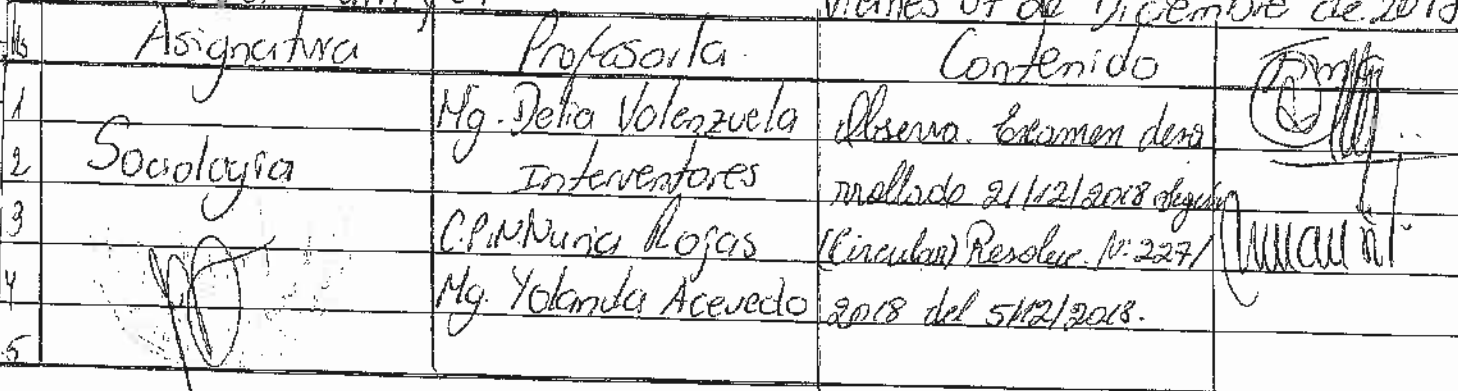 Viernes 07 de Diciembre de 2018
Hs Asignatura Profesor/a. Contenido Firma
1 Mg. Delia Valenzuela Observa. Examen desa
2 Sociología Interventores rrollado 21/12/2018 según
3 C.P.N. Nuria Rojas (Circular) Resoluc. N: 227/
4 Mg. Yolanda Acevedo 2018 del 5/12/2018.
5